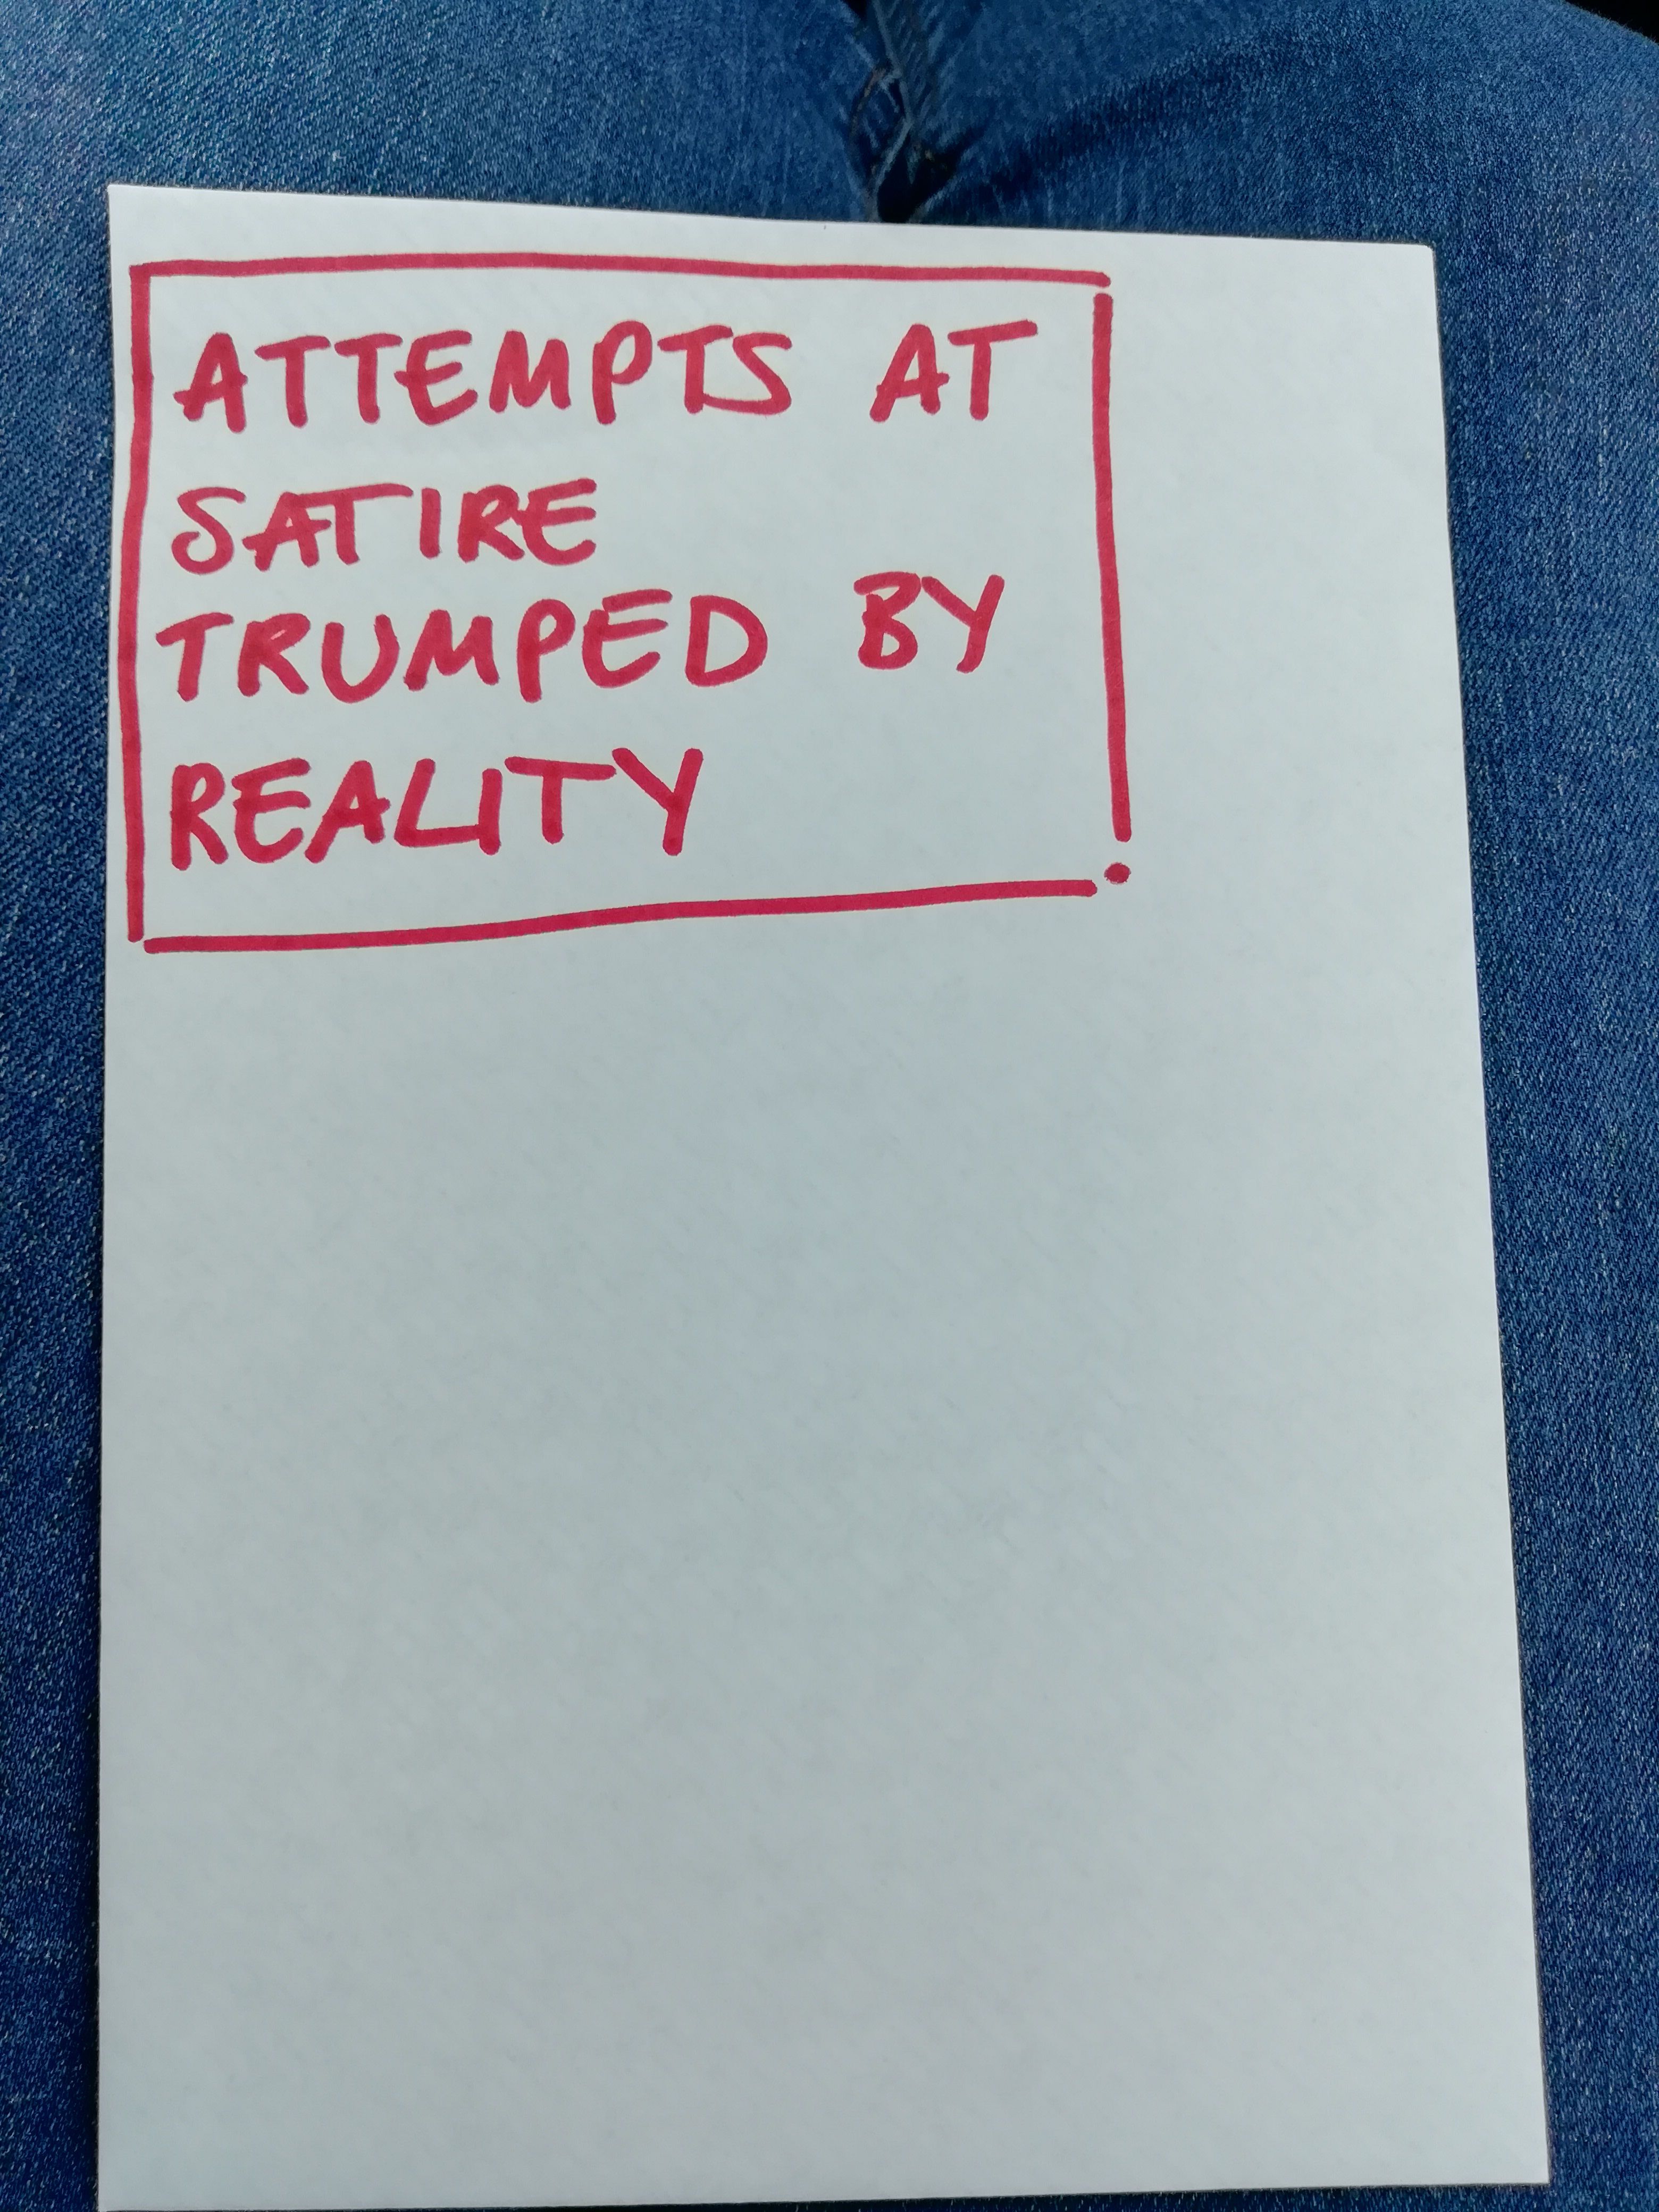 ATTEMPTS AT
SATIRE
TRUMPED BY
REALITY